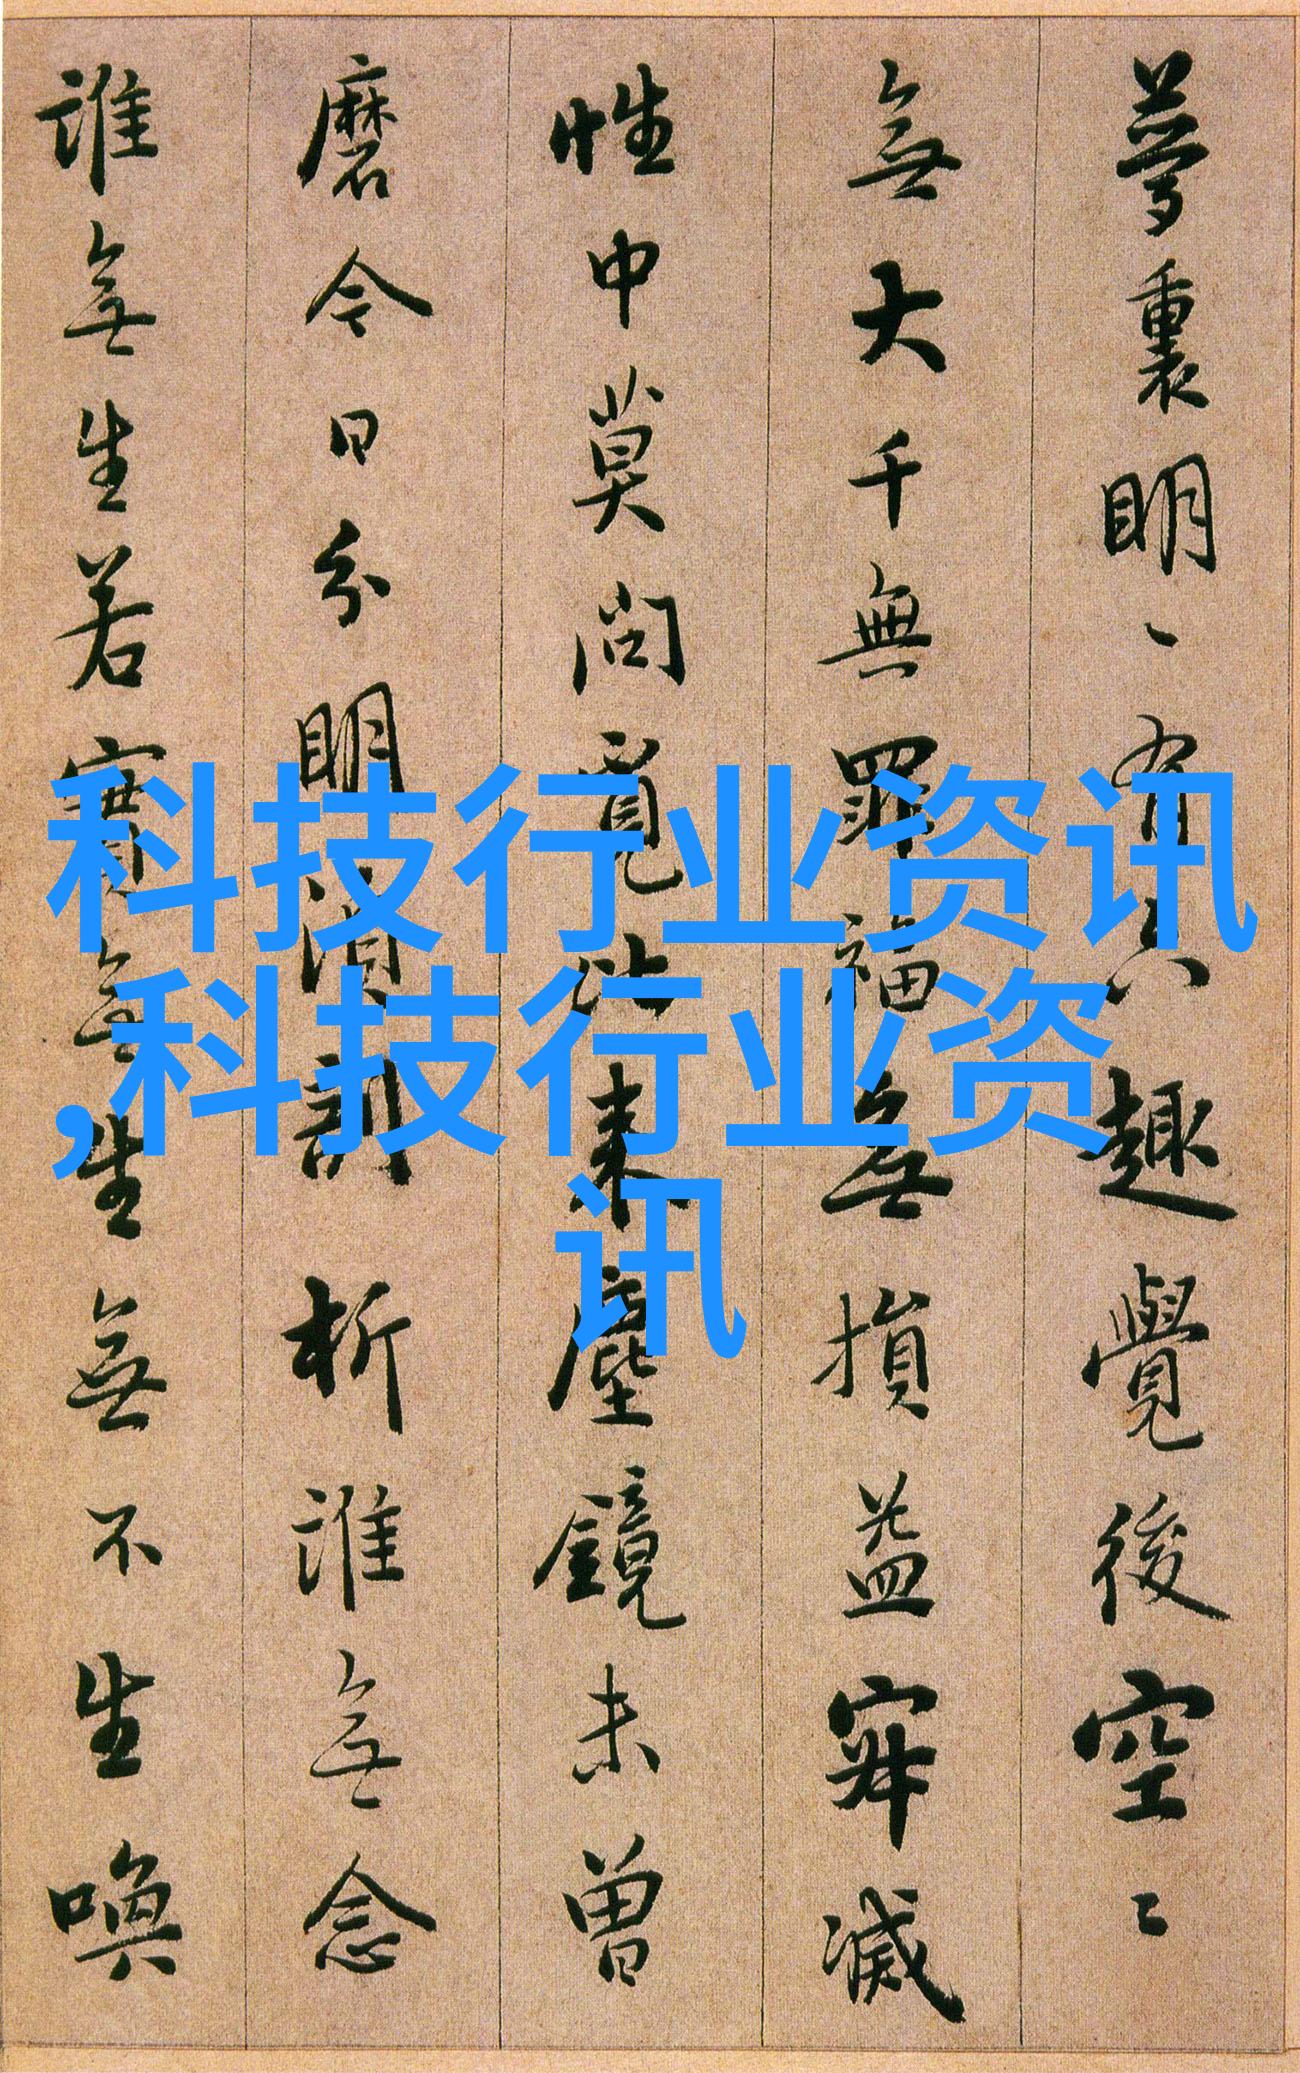 夢裏明丶有六趣覺後空〻
無大千無罪福無損益寂滅
性中莫問覓比來塵鏡未曾
磨今日分明須剖析誰無念
誰無生若實無生無不生喚
科技行业资讯
,科技行业资
讯